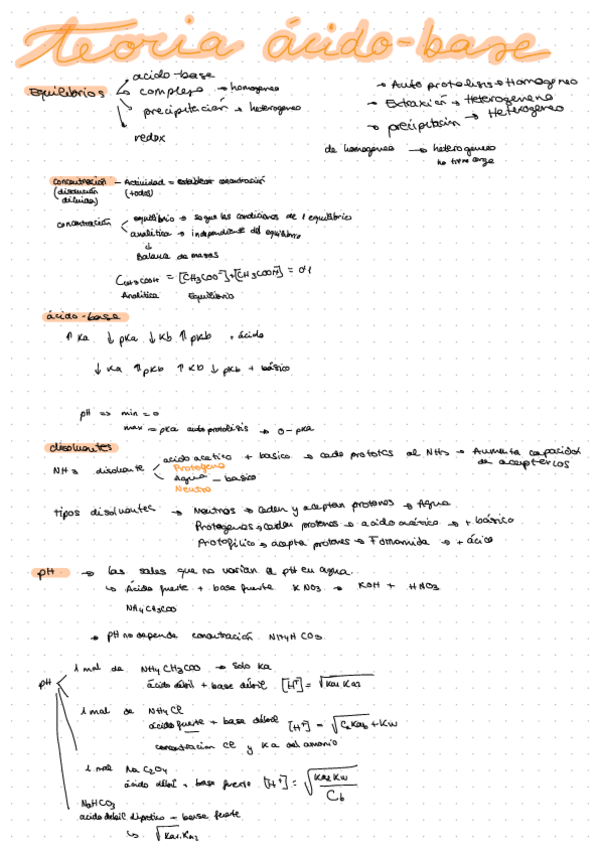 teoria ácido-base
Equilibrios
acido-base
complejo → homogeneo
precipitación → heterogeneo
redox
→ Auto protolisis → Homogeneo
→ Extraxión → Heterogeneno
→ precipitasión → Heterogeneo
de homogeneo → heterogeneo
no tiene carga
concentración - Actividad = establecer concentración
(disolución diluidas) (todos)
concentración
equilibrio → segun las condiciones de 1 equilibrio
analitica → independiente del equilibrio
↓
Balance de masas
C CH3COOH = [CH3COO⁻]+[CH3COOH] = 0'1
Analitica Equilibrio
ácido-base
↑ Ka ↓ pKa ↓ Kb ↑ pKb + ácido
↓ Ka ↑ pKb ↑ Kb ↓ pKb + básico
pH => min = 0
max = pKa autoprotolisis → 0-pKa
disolventes
NH3 disolvente
acido acetico + basico → cede protones al NH3 → Aumenta capacidad de
Protogeno
Agua - basico
Neutro
tipos disolventes → Neutros → Ceden y aceptan protones → Agua
Protogenos → ceden protones → acido acético → + básico
Protofilico → acepta protones → Formamida → + ácido
pH → las sales que no varian el pH en agua.
↳ Ácido fuerte + base fuerte KNO3 → KOH + HNO3
NH4CH3COO
→ pH no depende concentración NH4HCO3
pH
1 mol de NH4CH3COO → solo Ka
ácido débil + base débil [H⁺] = √Ka1 Ka2
1 mol de NH4Cl
ácido fuerte + base débil [H⁺] = √CaKab + Kw
concentracion Cl y Ka del amonio
1 mol Na C2O4
ácido débil + base fuerte [H⁺] = √Ka2 Kw / Cb
NaHCO3
acido debil diprotico - base fuerte
↳ √Ka1.Ka2